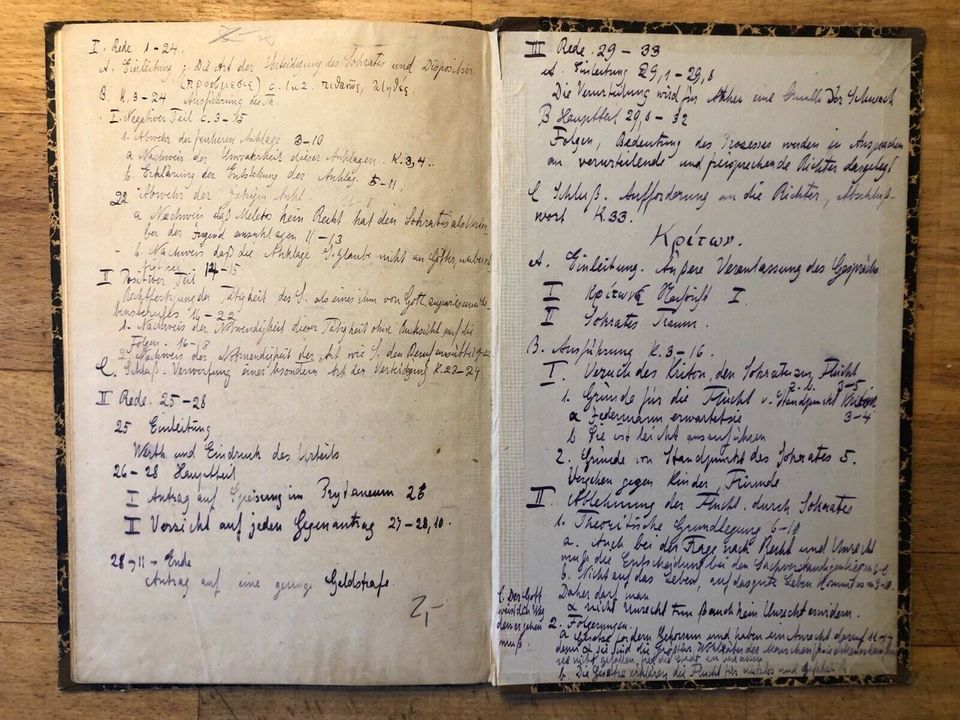 I. Rede 1-24.
A. Einleitung z. Die Art der Verteidigung des Sokrates und Disposition
(πρόθεσις) c. 1 u 2. πιθανῶς,
B. K. 3-24 Ausführung des Th.
I Negativer Teil C. 3-15
1. Abwehr der früheren Anklage 3-10
a Nachweis der Unwahrheit dieser Anklagen. K. 3, 4.
b. Erklärung der Entstehung des Anklag. 5-11.
22 Abwehr der jetzigen Ankl
a Nachweis daß Meletos kein Recht hat den Sokrates als
der Jugend anzuklagen 11-13
- b. Nachweis daß die Anklage S. glaube nicht an Götter,
14-15
II Positiver Teil
Rechtfertigung der Tätigkeit des S. als eines ihm von Gott
bensberufes. 16-22
1. Nachweis der Notwendigkeit dieser Tätigkeit ohne Rücksicht auf die
Folgen. 16-18
2. Nachweis der Notwendigkeit der Art wie S. den Beruf ausübte
C. Schluß. Verwerfung einer besondern Art der Verteidigung K. 23-24
II Rede. 25-28
25 Einleitung
Werth und Eindruck des Urteils
26-28 Hauptteil
I Antrag auf Speisung im Prytaneum 26
II Verzicht auf jeden Gegenantrag 27-28,10.
28,11-Ende
Antrag auf eine geringe Geldstrafe.
2,-
III Rede. 29-33
A. Einleitung 29,1-29,8
Die Verurteilung wird für Athen eine Quelle der Schmach
B Hauptteil 29,8-32
Folgen, Bedeutung des Prozesses werden in Ansprachen
an verurteilende und freisprechende Richter dargelegt
C Schluß. Aufforderung an die Richter, Abschluß-
wort K. 33.
Κρίτων.
A. Einleitung. Äußere Veranlassung des Gesprächs
I Κρίτων Nachricht I.
II Sokrates Traum.
B. Ausführung K. 3-16.
I. Versuch des Kriton, den Sokrates zur Flucht
z. b. 3-5
1. Gründe für die Flucht v. Standpunkt Kriton
3-4
a Jedermann erwartet sie
b Sie ist leicht auszuführen
2. Gründe vom Standpunkt des Sokrates 5.
Vergehen gegen Kinder, Freunde
II Ablehnung der Flucht durch Sokrates
1. Theoretische Grundlegung 6-10
a. Auch bei der Frage nach Recht und Unrecht
muß die Entscheidung bei den Sachverständigen liegen
b. Nicht auf das Leben, auf das gute Leben kommt es an 9-10
Daher darf man
α nicht Unrecht tun β auch kein Unrecht erwidern.
C. Der Gott
weist den Weg
den er gehen
muß.
2. Folgerungen.
a Gesetze fordern Gehorsam und haben ein Anrecht darauf
denn α sie sind die größten Wohltäter des Menschen
b. Die Gesetze erklären die Flucht für nutzlos und